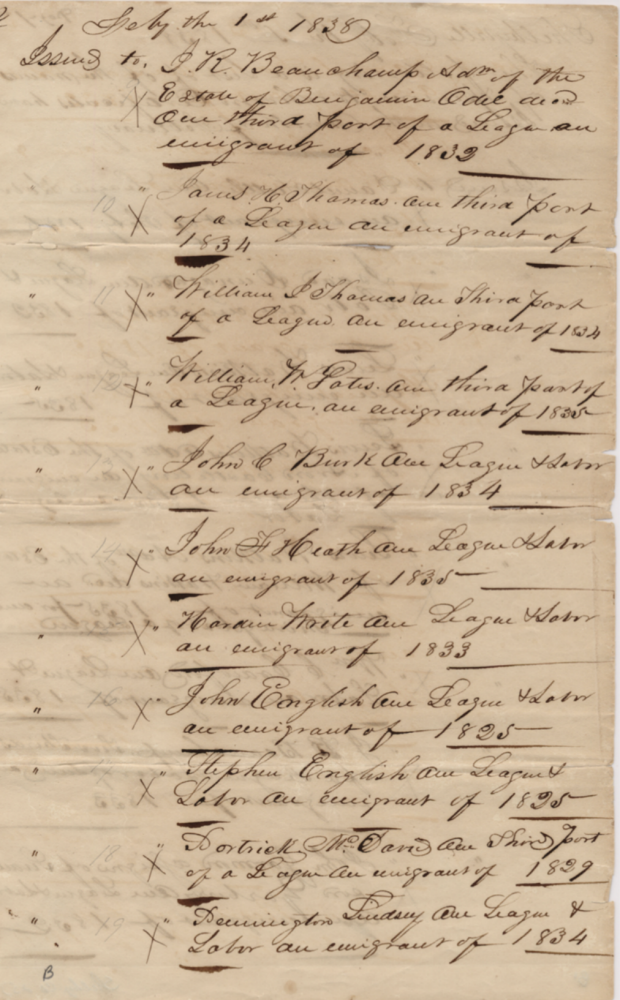 Feby the 1st 1838
Issued to. J. R. Beauchamp Adm of the
X Estate of Benjamin Odel decd
One third part of a League an
emigrant of 1833
" X " James H Thomas one third part
of a League an emigrant of
1834
" X " William I Thomas one Third part
of a League an emigrant of 1834
" X " William W. one third part of
a League. an emigrant of 1835
" X " John C Burk one League & Labor
an emigrant of 1834
" X " John F Heath one League & Labor
an emigrant of 1835
" X " Hardin Write one League & Labor
an emigrant of 1833
" X " John English one League & Labor
an emigrant of 1825
" X " Stephen English one League &
Labor an emigrant of 1825
" X " Mc David one Third part
of a League an emigrant of 1829
" X " Pennington Lindsey one League &
Labor an emigrant of 1834
B